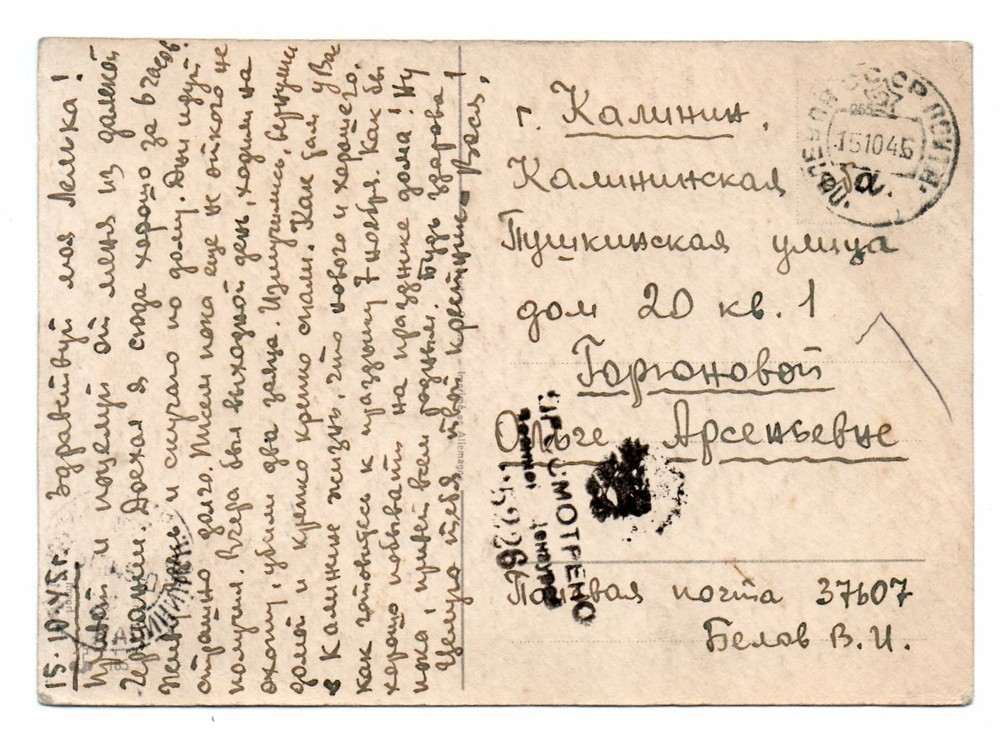 15.10.45г. Здравствуй моя Лелька!
Привет и поцелуй от меня из далекой
Германии. Доехал я сюда хорошо за 6 часов.
и скучаю по дому. Дни идут
страшно долго. Писем пока еще не от кого не
получил. Вчера был выходной день, ходили на
охоту, убили два зайца. Измучились, вернулись
домой и крепко крепко спали. Как дела у Вас
в Калинине жизнь, что нового и хорошего.
как готовитесь к празднику 7 ноября. Как бы
хорошо побывать на празднике дома! Ну
пока, привет всем родным. Будь здорова!
Целую тебя твой крепко Вася,
г. Калинин,
Калининская
Пушкинская улица
дом 20 кв. 1
Горюновой
Ольге Арсеньевне
Полевая почта 37607
Белов В. И.
СССР ПОЧТА
15 10 45
ПРОСМОТРЕНО
Военной Цензурой
Allemagne